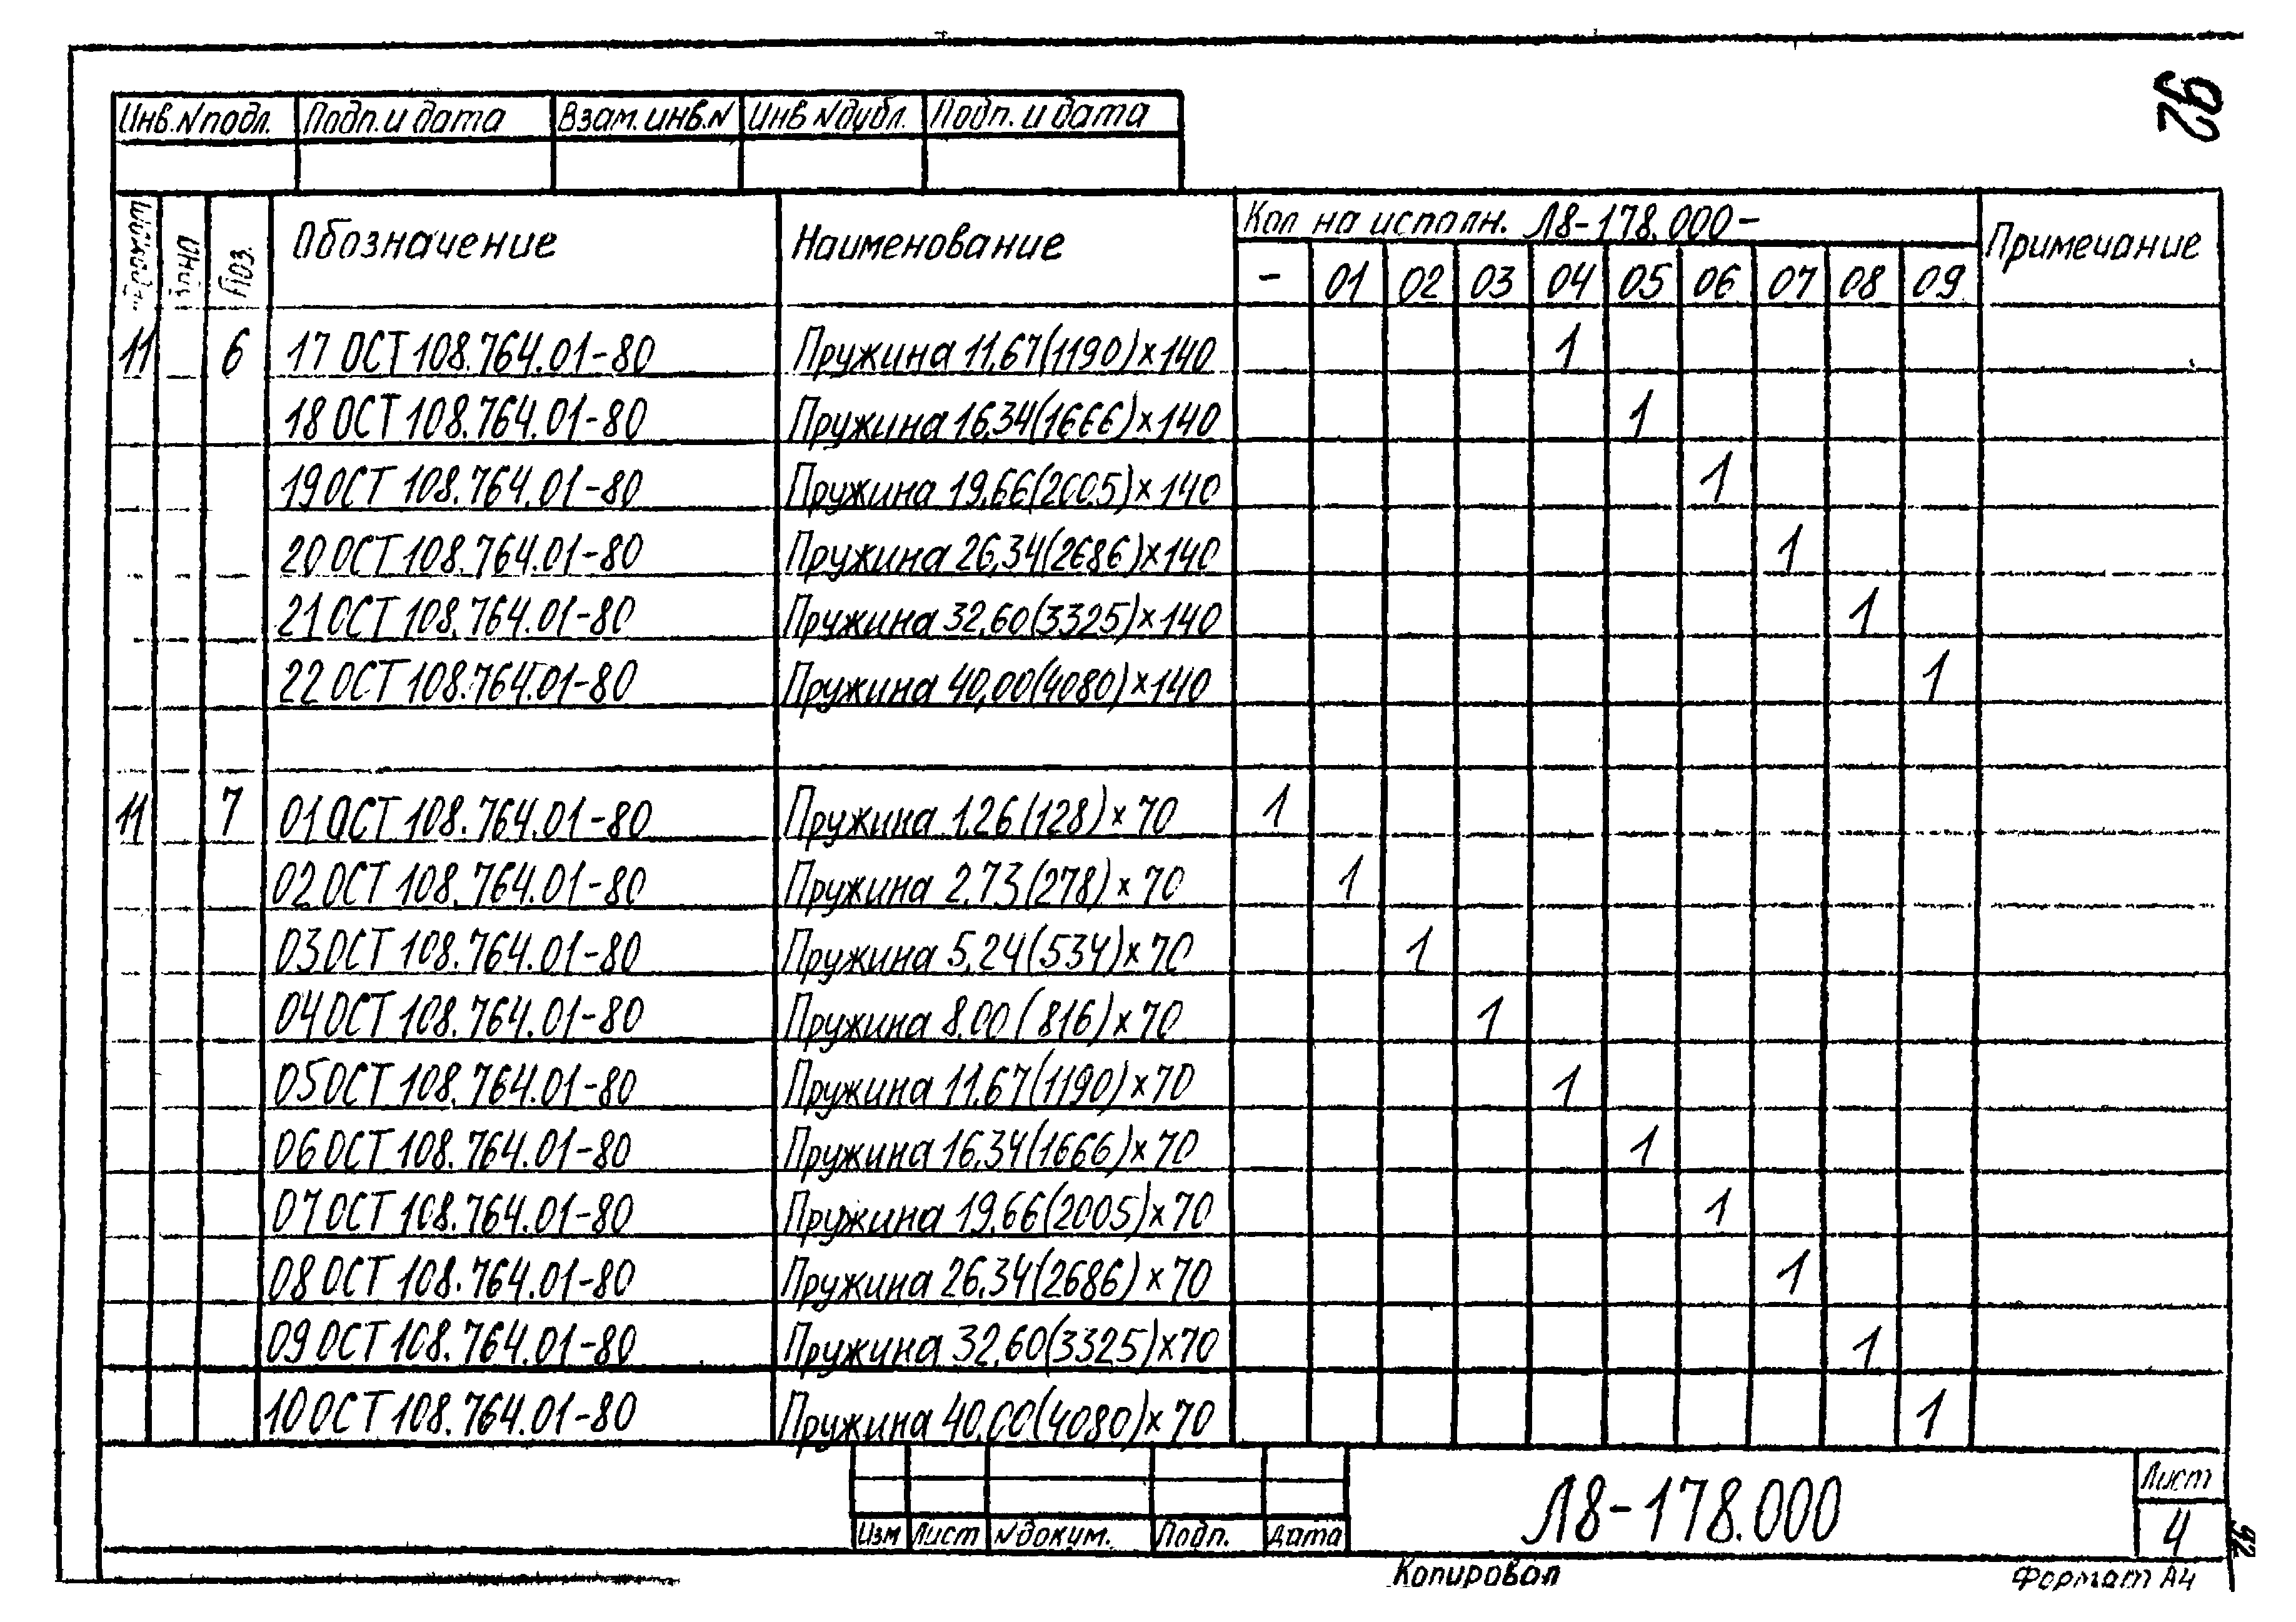 92
Инв.Nподл. Подп.и дата Взам.инв.N Инв Nдубл. Подп.и дата
Поз. Обозначение Наименование Кол на исполн. Л8-178.000- Примечание
- 01 02 03 04 05 06 07 08 09
11 6 17 ОСТ 108.764.01-80 Пружина 11,67(1190)×140 1
18 ОСТ 108.764.01-80 Пружина 16,34(1666)×140 1
19 ОСТ 108.764.01-80 Пружина 19,66(2005)×140 1
20 ОСТ 108.764.01-80 Пружина 26,34(2686)×140 1
21 ОСТ 108.764.01-80 Пружина 32,60(3325)×140 1
22 ОСТ 108.764.01-80 Пружина 40,00(4080)×140 1
11 7 01 ОСТ 108.764.01-80 Пружина 1,26(128)×70 1
02 ОСТ 108.764.01-80 Пружина 2,73(278)×70 1
03 ОСТ 108.764.01-80 Пружина 5,24(534)×70 1
04 ОСТ 108.764.01-80 Пружина 8,00(816)×70 1
05 ОСТ 108.764.01-80 Пружина 11,67(1190)×70 1
06 ОСТ 108.764.01-80 Пружина 16,34(1666)×70 1
07 ОСТ 108.764.01-80 Пружина 19,66(2005)×70 1
08 ОСТ 108.764.01-80 Пружина 26,34(2686)×70 1
09 ОСТ 108.764.01-80 Пружина 32,60(3325)×70 1
10 ОСТ 108.764.01-80 Пружина 40,00(4080)×70 1
Изм Лист Nдокум. Подп. Дата
Л8-178.000
Лист
4
92
Копировал
Формат А4